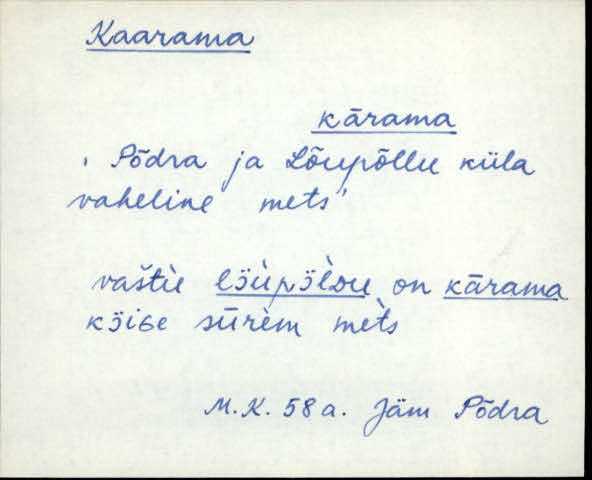 Kaarama
kārama
' Põdra ja Lõupõllu küla
vaheline mets'
vaštìe lɔ̈ùpɔ̈lDu on kārama
kɔ̈iGe sūrèm mèts
M.K. 58 a. Jäm Põdra